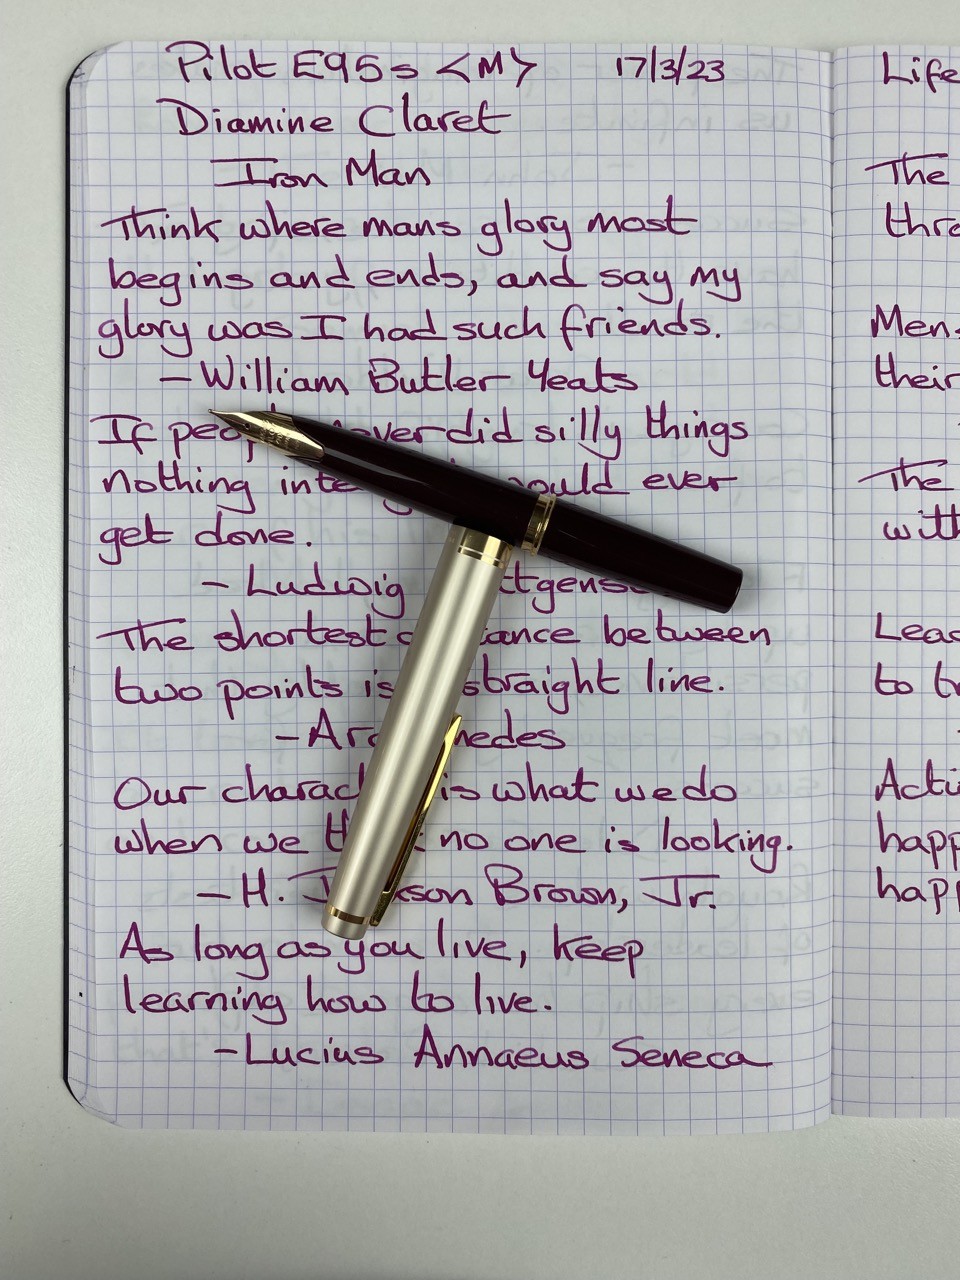 Pilot E95s <M> 17/3/23
Diamine Claret
Iron Man
Think where mans glory most
begins and ends, and say my
glory was I had such friends.
- William Butler Yeats
If people never did silly things
nothing intelligent would ever
get done.
- Ludwig Wittgenstein
The shortest distance between
two points is straight line.
- Archimedes
Our character is what we do
when we think no one is looking.
- H. Jackson Brown, Jr.
As long as you live, keep
learning how to live.
- Lucius Annaeus Seneca
Life
The
their
The
with
to